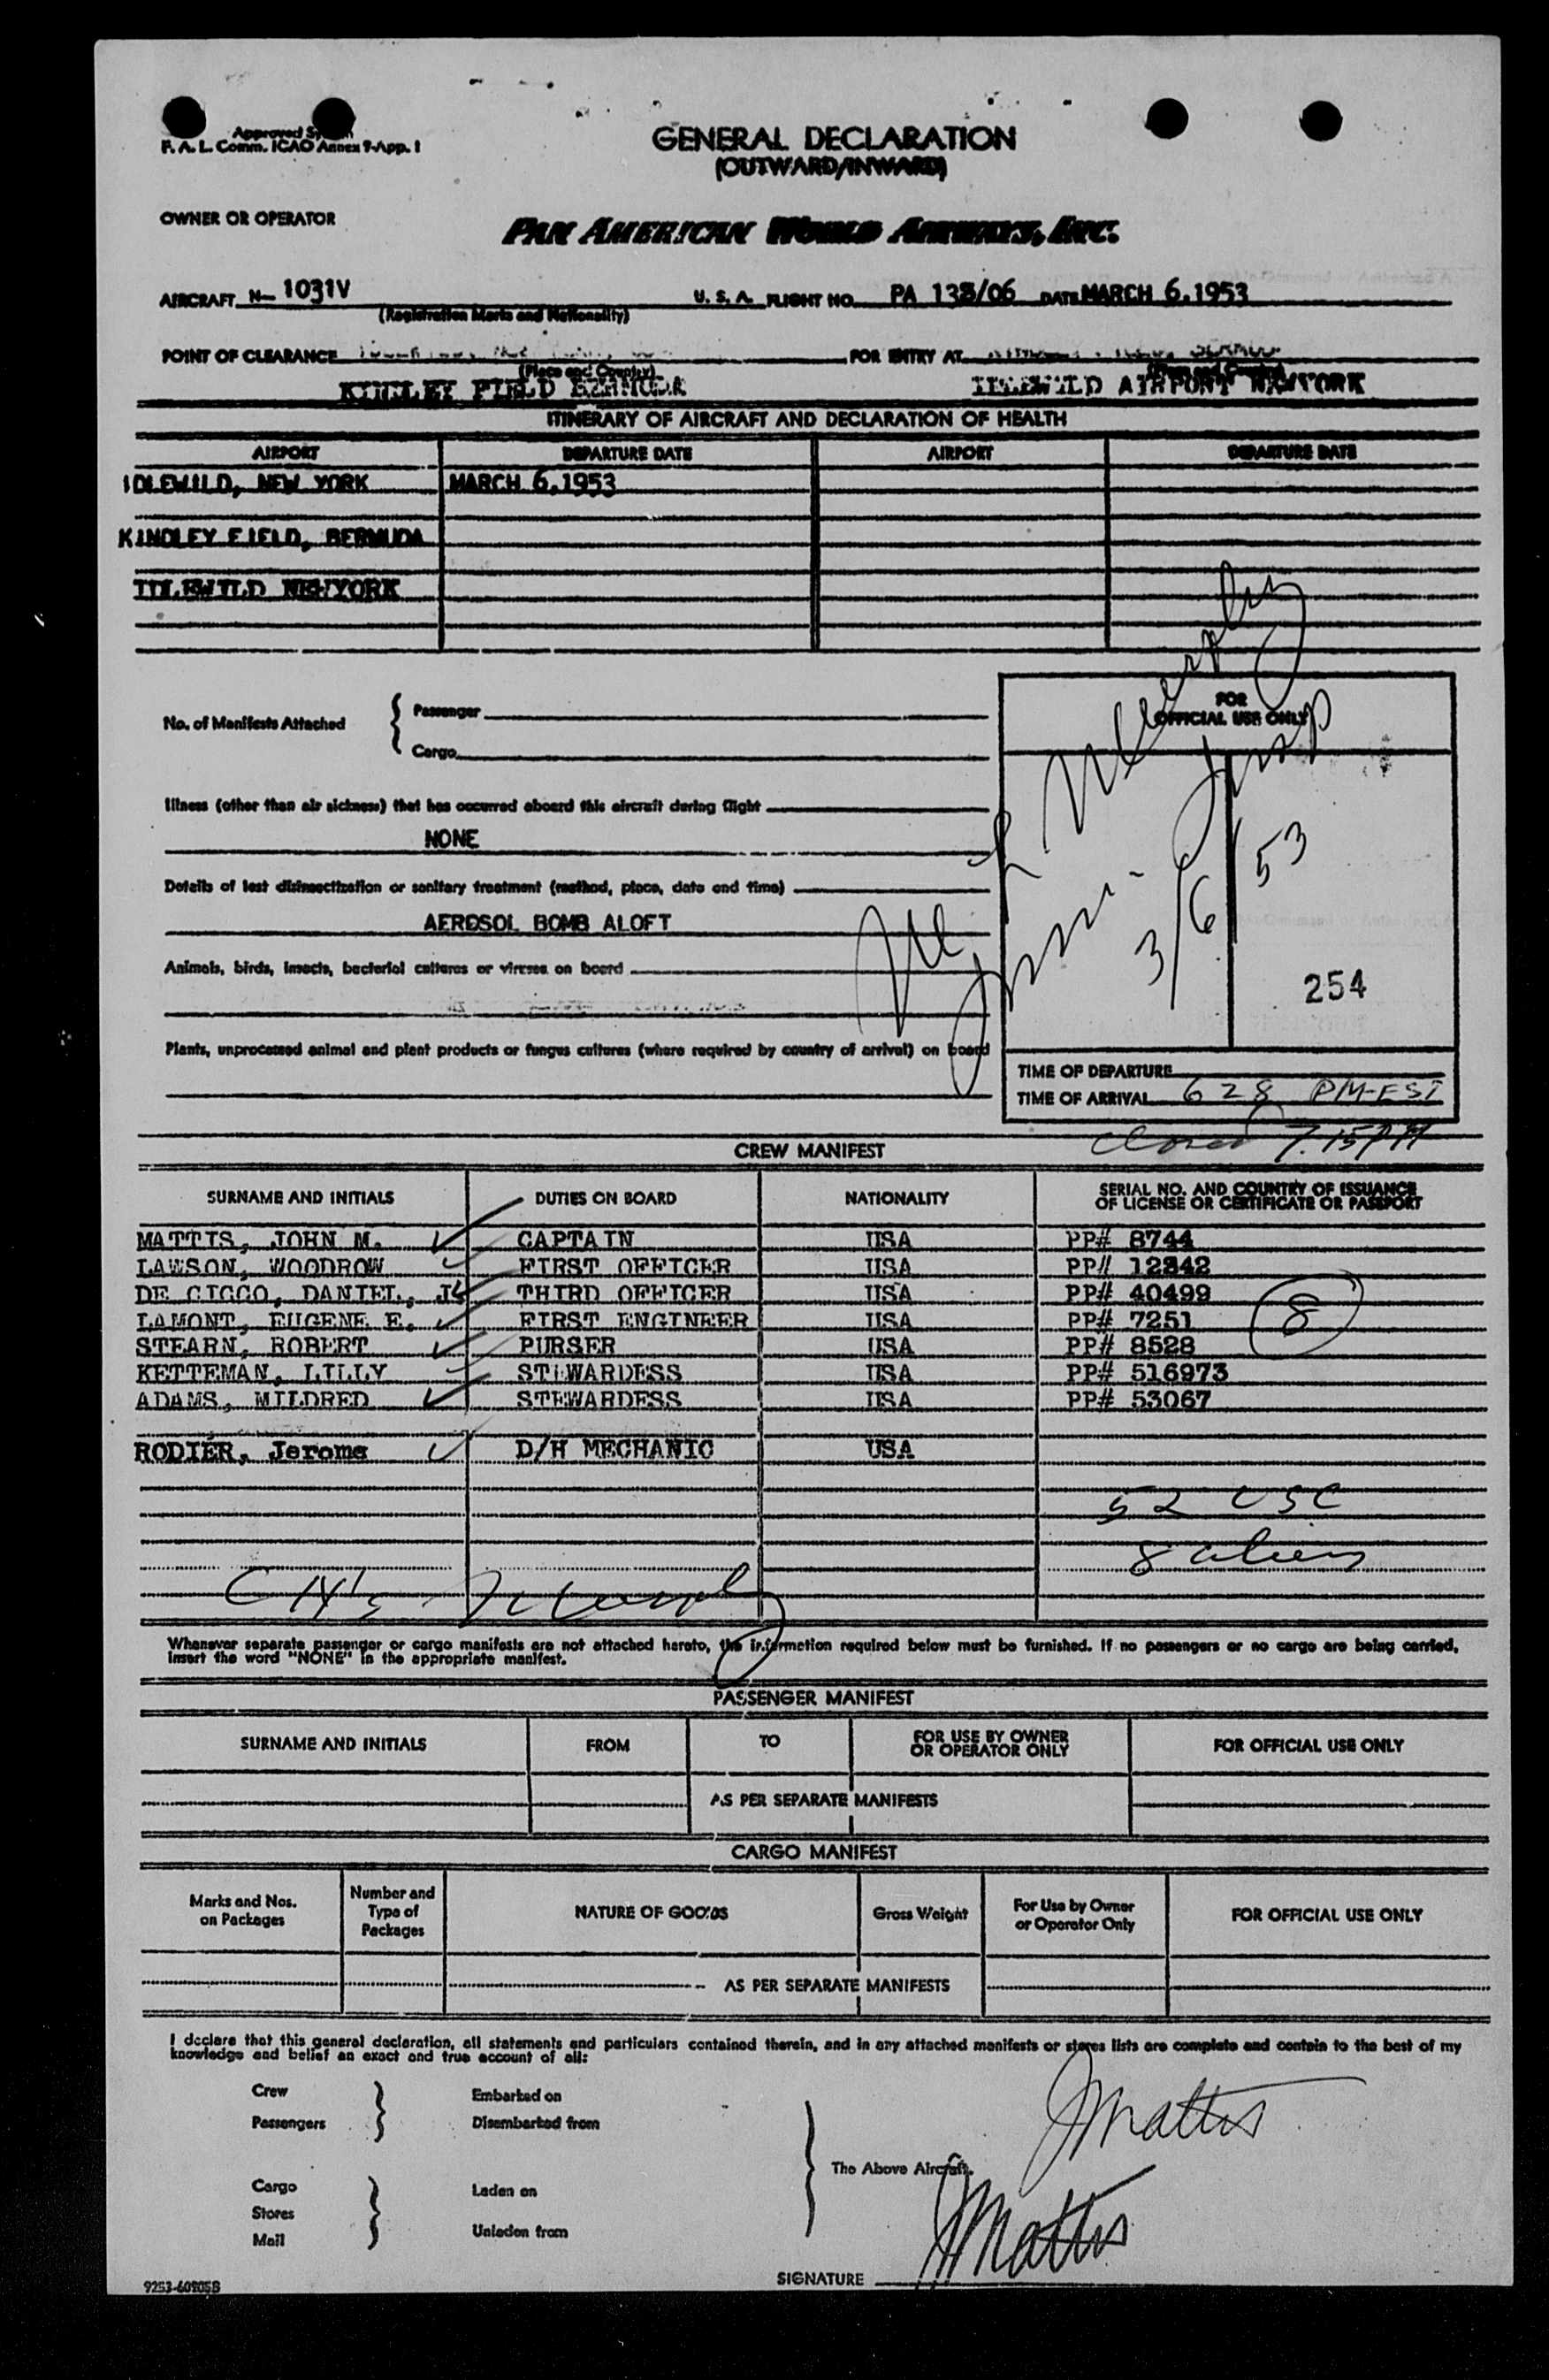 Approved
F. A. L. Comm. ICAO Annex 9-App. 1
GENERAL DECLARATION
(OUTWARD/INWARD)
OWNER OR OPERATOR
PAN AMERICAN WORLD AIRWAYS, INC.
AIRCRAFT N- 1031V U. S. A. FLIGHT NO. PA 138/06 DATE MARCH 6,1953
(Registration Marks and Nationality)
POINT OF CLEARANCE FOR ENTRY AT
(Place and Country) (Place and Country)
KINDLEY FIELD BERMUDA IDLEWILD AIRPORT NEWYORK
ITINERARY OF AIRCRAFT AND DECLARATION OF HEALTH
AIRPORT DEPARTURE DATE AIRPORT DEPARTURE DATE
IDLEWILD, NEW YORK MARCH 6,1953
KINDLEY FIELD, BERMUDA
IDLEWILD NEWYORK
No. of Manifests Attached
Passenger
Cargo
FOR
OFFICIAL USE ONLY
Illness (other than air sickness) that has occurred aboard this aircraft during flight
NONE
Details of last disinsectization or sanitary treatment (method, place, date and time)
AEROSOL BOMB ALOFT
3/6/53
Animals, birds, insects, bacterial cultures or viruses on board
254
Plants, unprocessed animal and plant products or fungus cultures (where required by country of arrival) on board
TIME OF DEPARTURE
TIME OF ARRIVAL 628 PM-EST
closed 7.15PM
CREW MANIFEST
SURNAME AND INITIALS DUTIES ON BOARD NATIONALITY SERIAL NO. AND COUNTRY OF ISSUANCE
OF LICENSE OR CERTIFICATE OR PASSPORT
MATTIS, JOHN M. CAPTAIN USA PP# 8744
LAWSON, WOODROW FIRST OFFICER USA PP# 12342
DE CICCO, DANIEL, J. THIRD OFFICER USA PP# 40499
LAMONT, EUGENE E. FIRST ENGINEER USA PP# 7251
8
STEARN, ROBERT PURSER USA PP# 8528
KETTEMAN, LILLY STEWARDESS USA PP# 516973
ADAMS, MILDRED STEWARDESS USA PP# 53067
RODIER, Jerome D/H MECHANIC USA
52 USC
8 aliens
Whenever separate passenger or cargo manifests are not attached hereto, the information required below must be furnished. If no passengers or no cargo are being carried,
insert the word "NONE" in the appropriate manifest.
PASSENGER MANIFEST
SURNAME AND INITIALS FROM TO FOR USE BY OWNER
OR OPERATOR ONLY FOR OFFICIAL USE ONLY
AS PER SEPARATE MANIFESTS
CARGO MANIFEST
Marks and Nos.
on Packages
Number and
Type of
Packages
NATURE OF GOODS
Gross Weight
For Use by Owner
or Operator Only
FOR OFFICIAL USE ONLY
AS PER SEPARATE MANIFESTS
I declare that this general declaration, all statements and particulars contained therein, and in any attached manifests or stores lists are complete and contain to the best of my
knowledge and belief an exact and true account of all:
Crew Embarked on
Passengers Disembarked from
The Above Aircraft.
JMattis
Cargo Laden on
Stores
Mail Unladen from
JMattis
SIGNATURE
9253-60905B